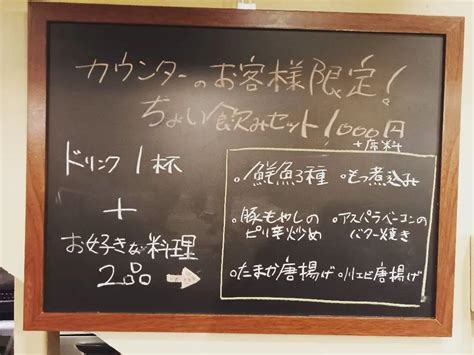 カウンターのお客様限定!
ちょい飲みセット1,000円
+席料
ドリンク1杯
+
お好きな料理
2品
。鮮魚3種 。もつ煮込み
。豚もやしの
ピリ辛炒め
。アスパラベーコンの
バター焼き
。たまか唐揚げ 。川エビ唐揚げ